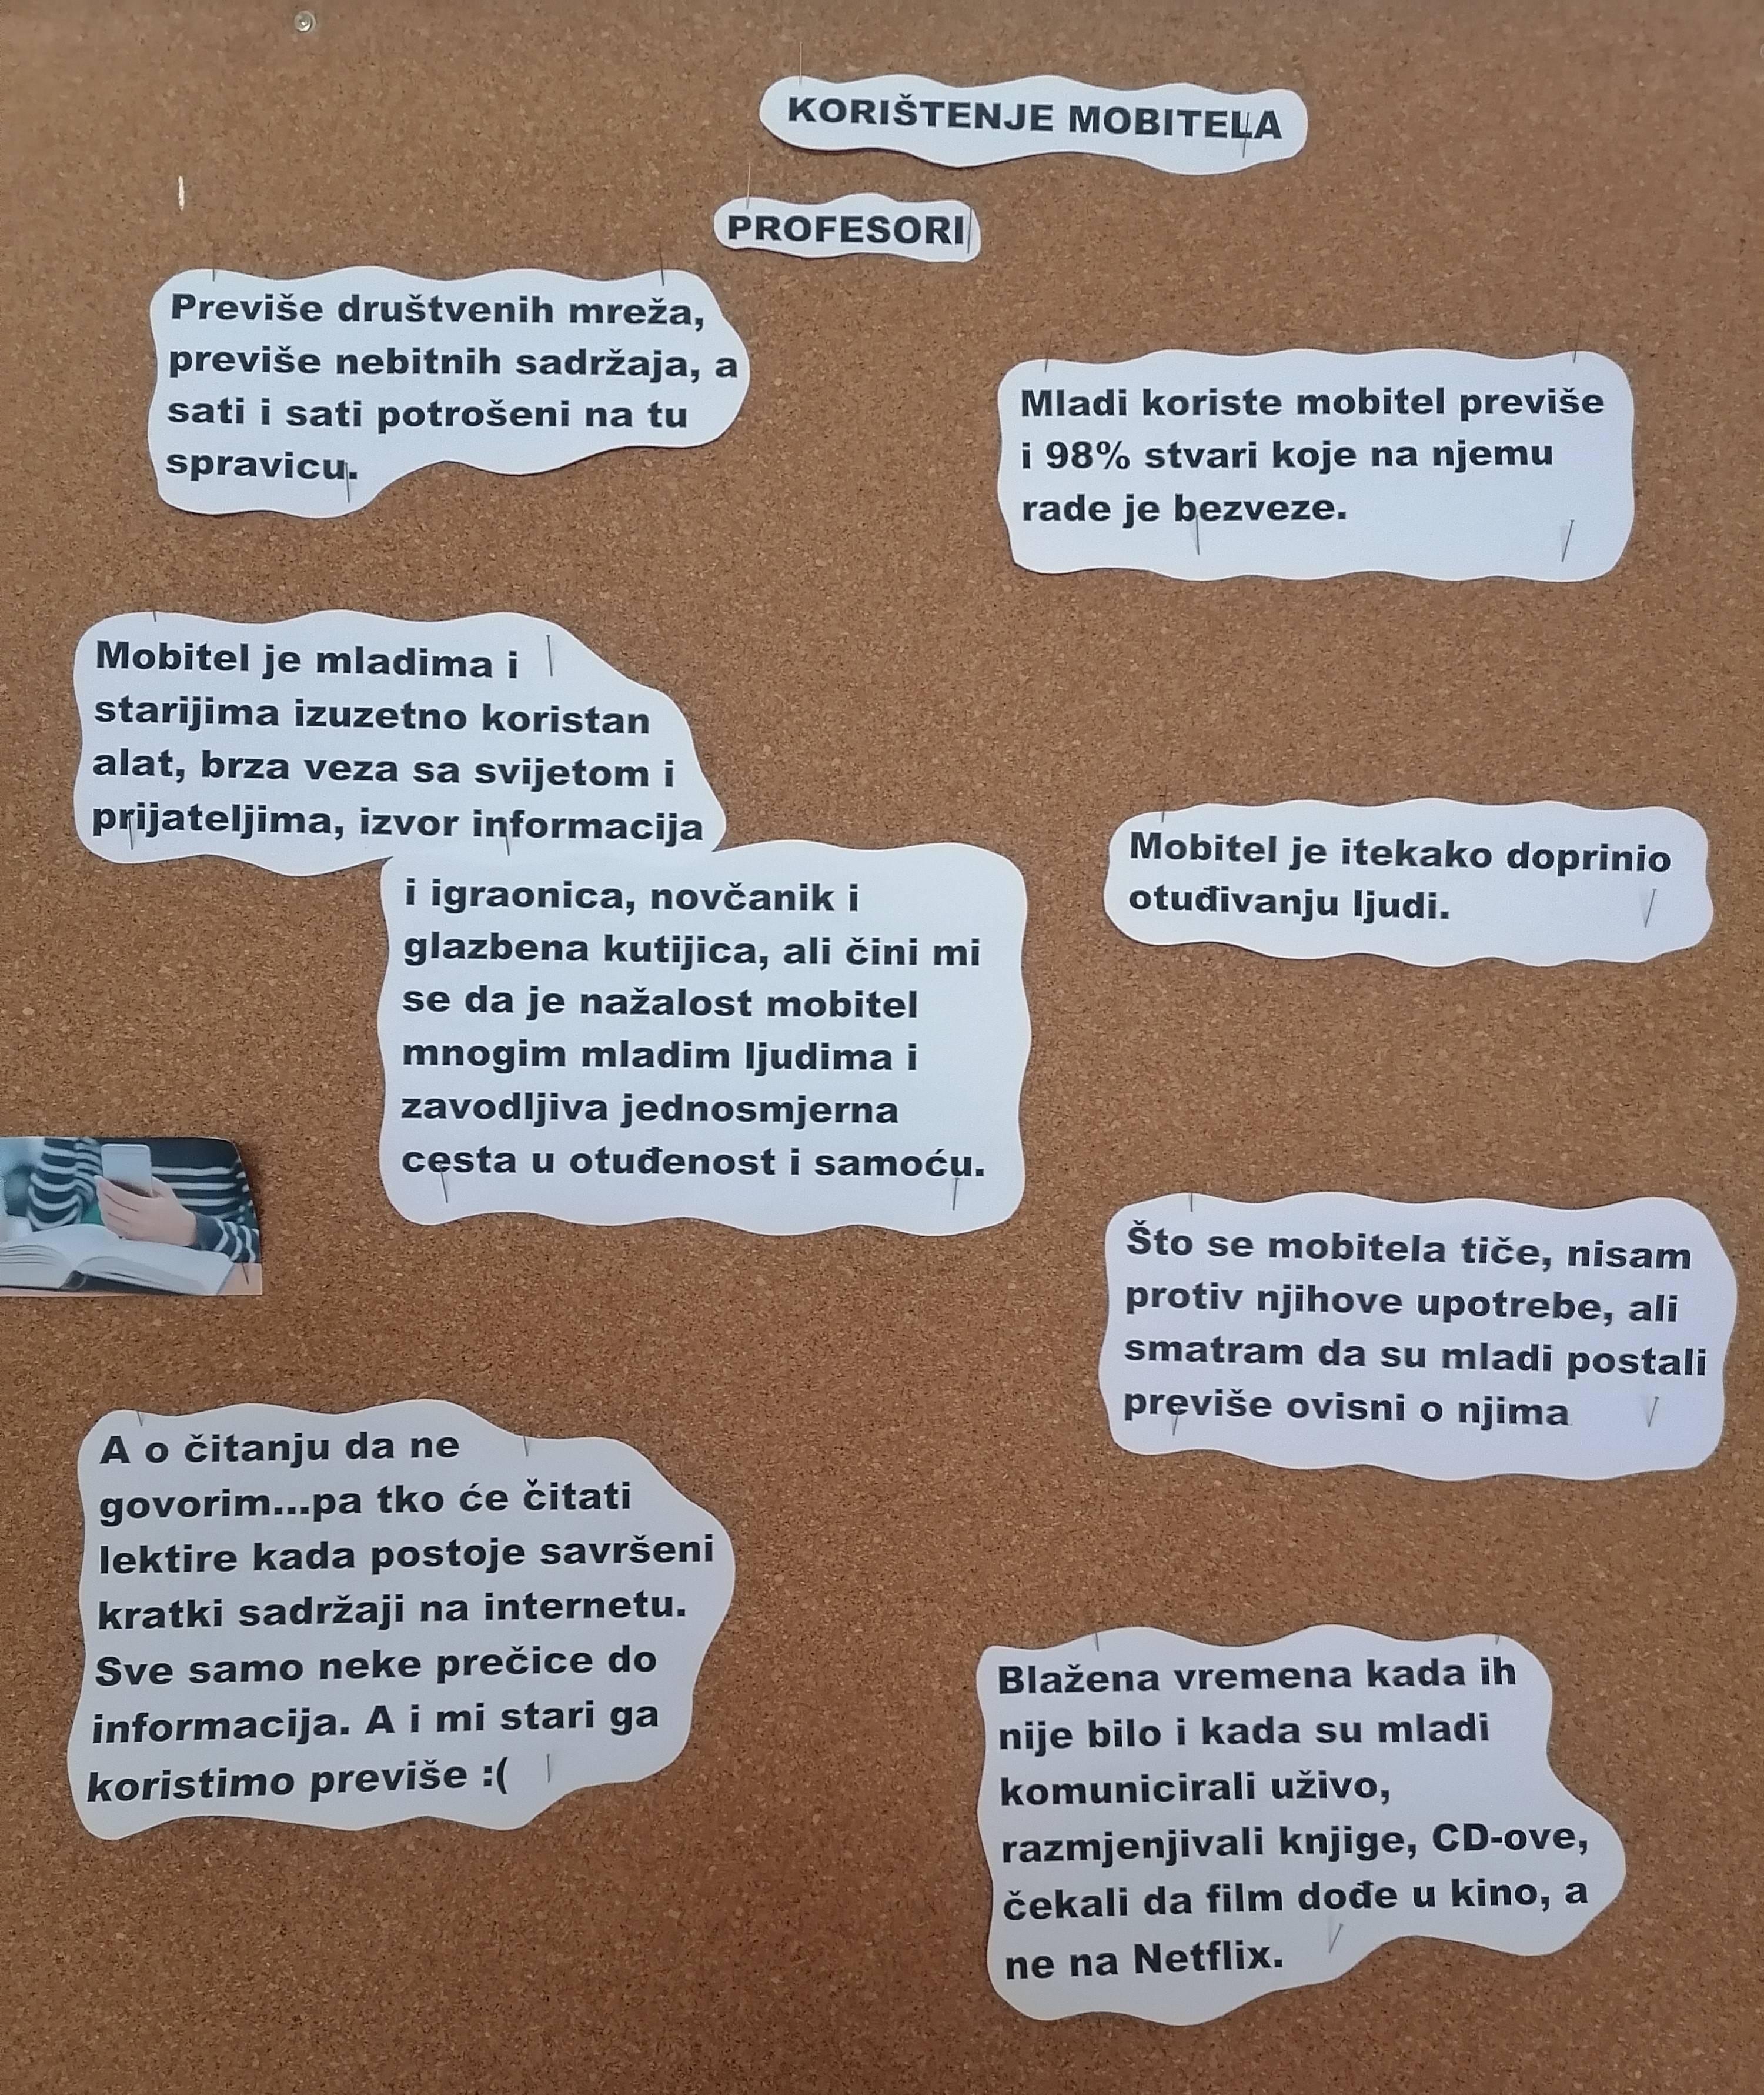 KORIŠTENJE MOBITELA
PROFESORI
Previše društvenih mreža,
previše nebitnih sadržaja, a
sati i sati potrošeni na tu
spravicu.
Mladi koriste mobitel previše
i 98% stvari koje na njemu
rade je bezveze.
Mobitel je mladima i
starijima izuzetno koristan
alat, brza veza sa svijetom i
prijateljima, izvor informacija
i igraonica, novčanik i
glazbena kutijica, ali čini mi
se da je nažalost mobitel
mnogim mladim ljudima i
zavodljiva jednosmjerna
cesta u otuđenost i samoću.
Mobitel je itekako doprinio
otuđivanju ljudi.
Što se mobitela tiče, nisam
protiv njihove upotrebe, ali
smatram da su mladi postali
previše ovisni o njima
A o čitanju da ne
govorim...pa tko će čitati
lektire kada postoje savršeni
kratki sadržaji na internetu.
Sve samo neke prečice do
informacija. A i mi stari ga
koristimo previše :(
Blažena vremena kada ih
nije bilo i kada su mladi
komunicirali uživo,
razmjenjivali knjige, CD-ove,
čekali da film dođe u kino, a
ne na Netflix.